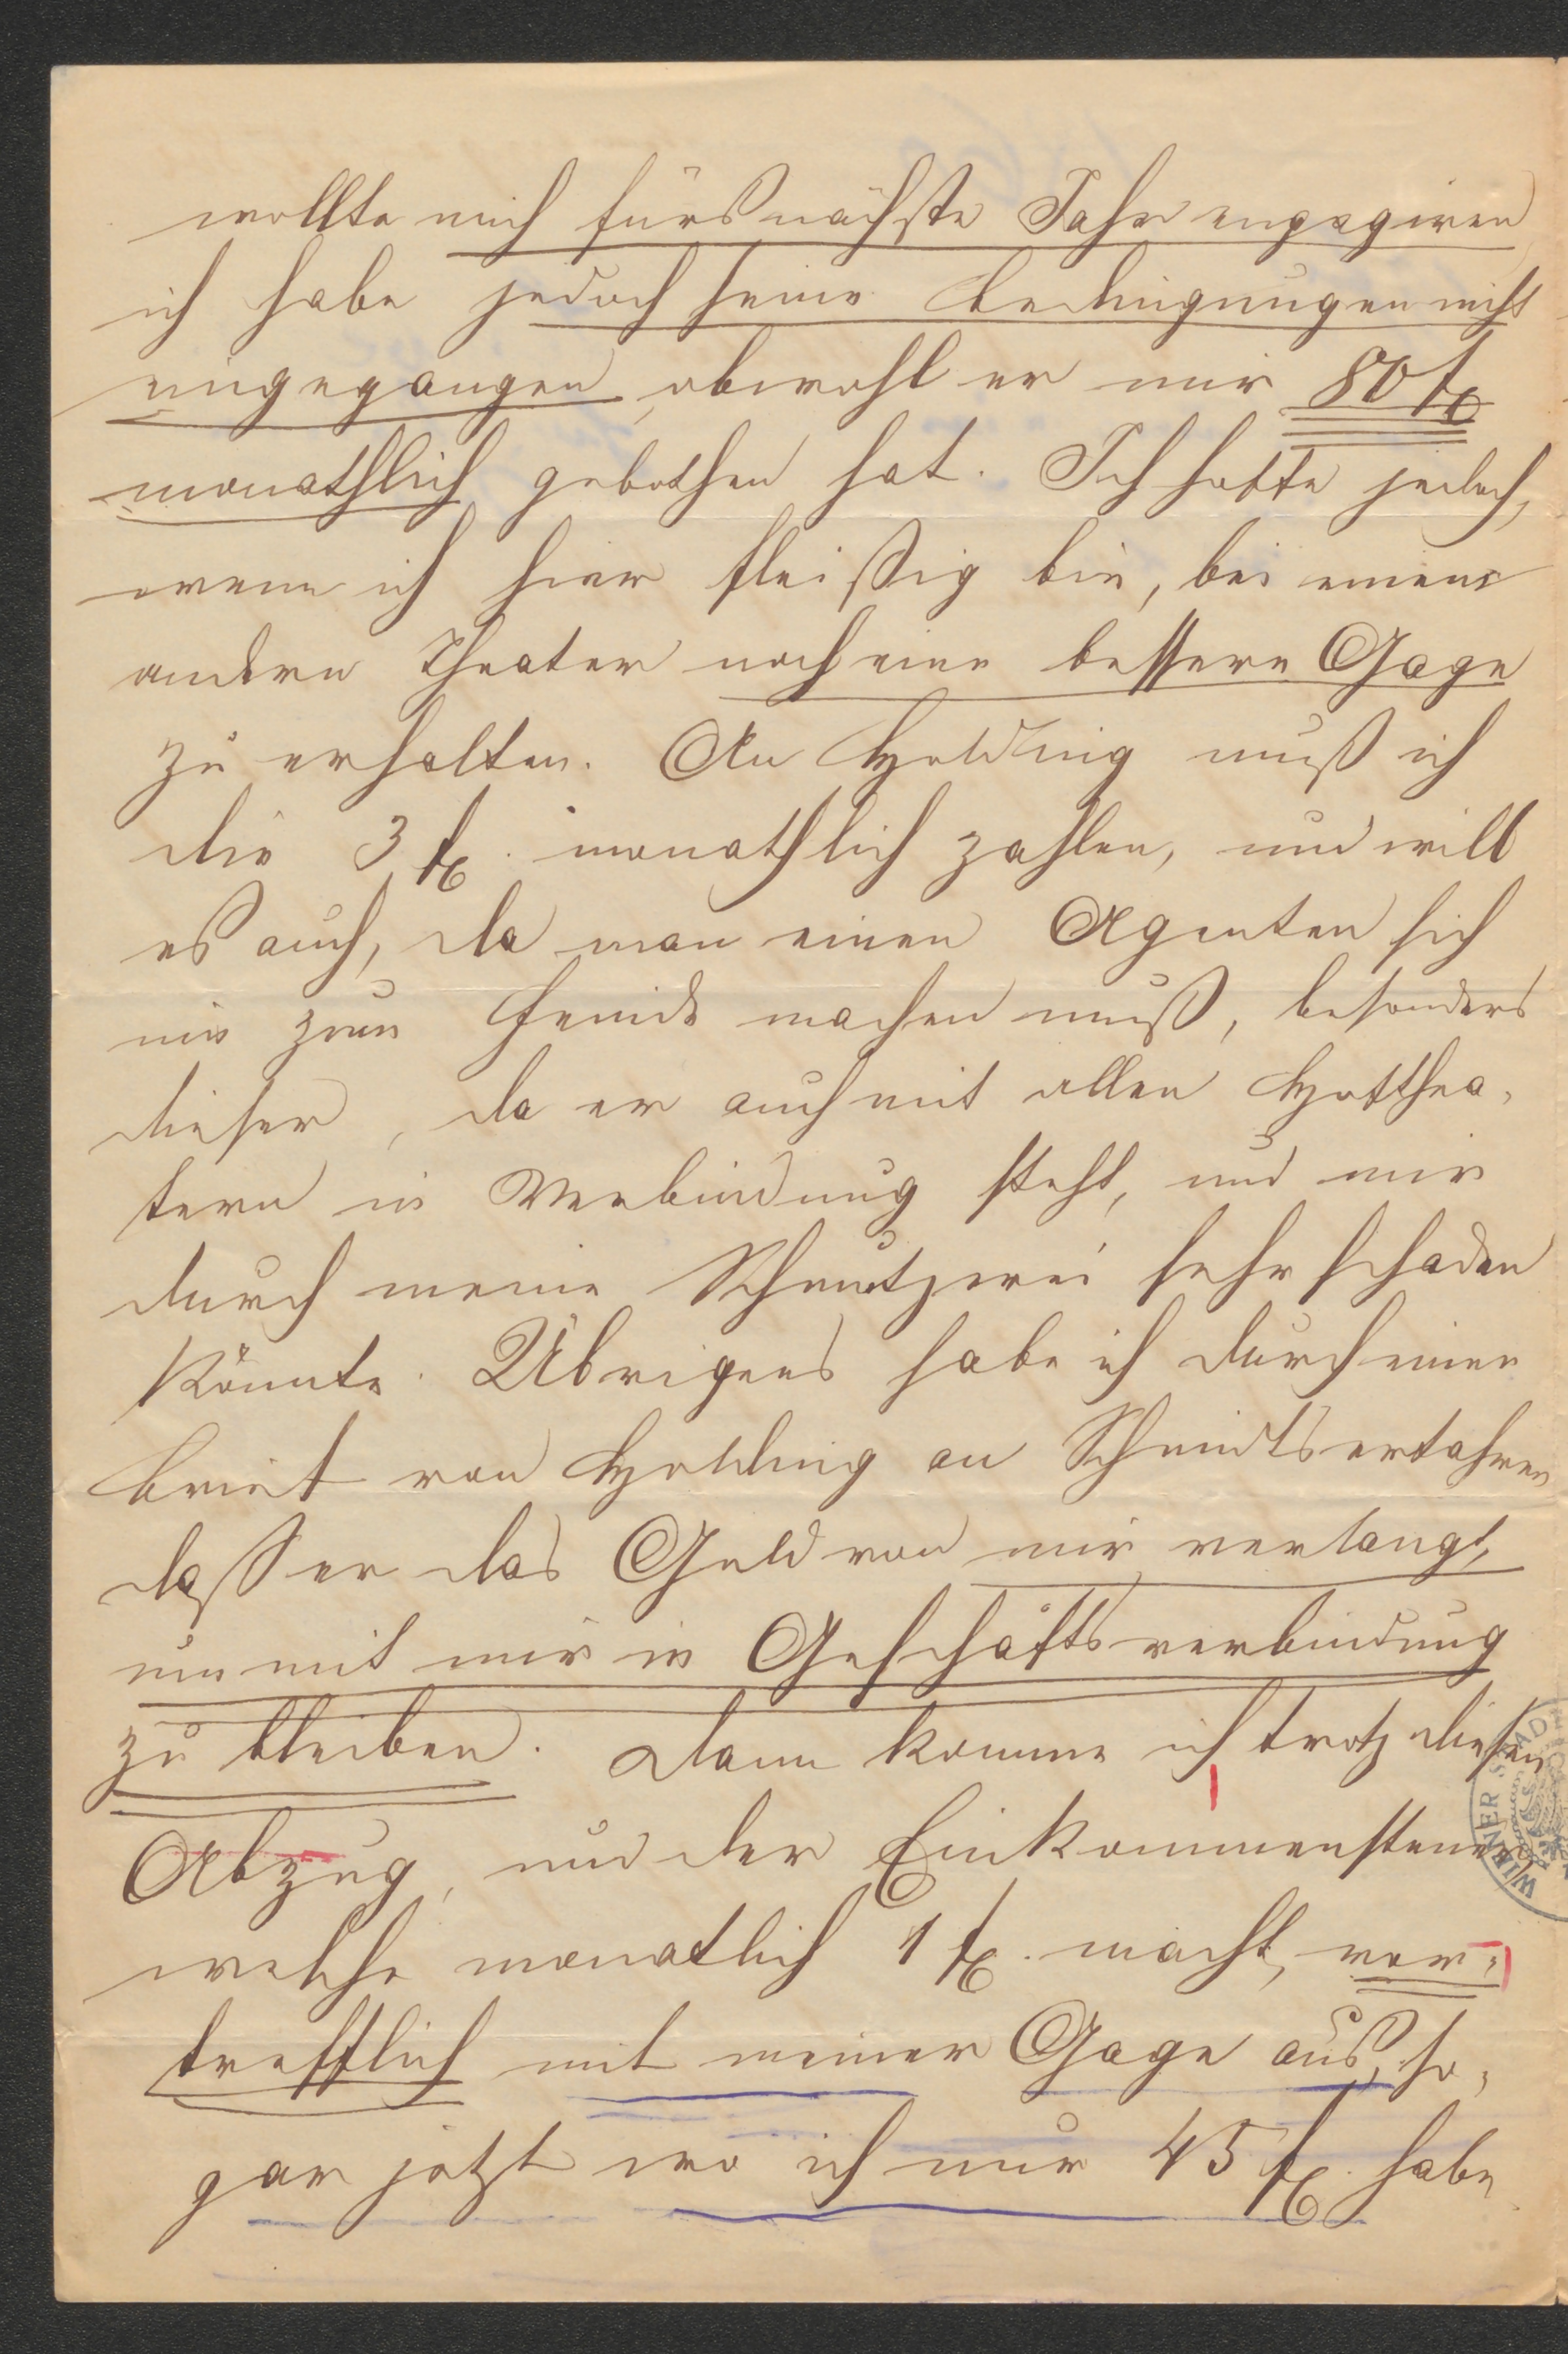 wollte mich fürs nächste Jahr engagiren
ich habe jedoch seine Bedingungen nicht
eingegangen, obwohl er mir 80 fl
monathlich gebothen hat. Ich hoffe jedoch,
wenn ich hier fleißig bin, bei einem
andern Theater noch eine bessere Gage
zu erhalten. An Holding muß ich
die 3 fl. monathlich zahlen, und will
es auch, da man einen Agenten sich
nie zum Feinde machen muß, besonders
dieser, da er auch mit allen Hofthea-
tern in Verbindung steht, und mir
durch meine Schmutzerei sehr schaden
könnte. Übrigens habe ich durch einen
Brief von Holding an Schmidts erfahren
daß er das Geld von mir verlangt,
um mit mir in Geschäftsverbindung
zu bleiben. Dann komme ich trotz diesen
Abzug, und der Einkommensteuer
welche monatlich 1 fl. macht, vor-
trefflich mit meiner Gage aus, so-
gar jetzt wo ich nur 45 fl. habe
WIENER STADT